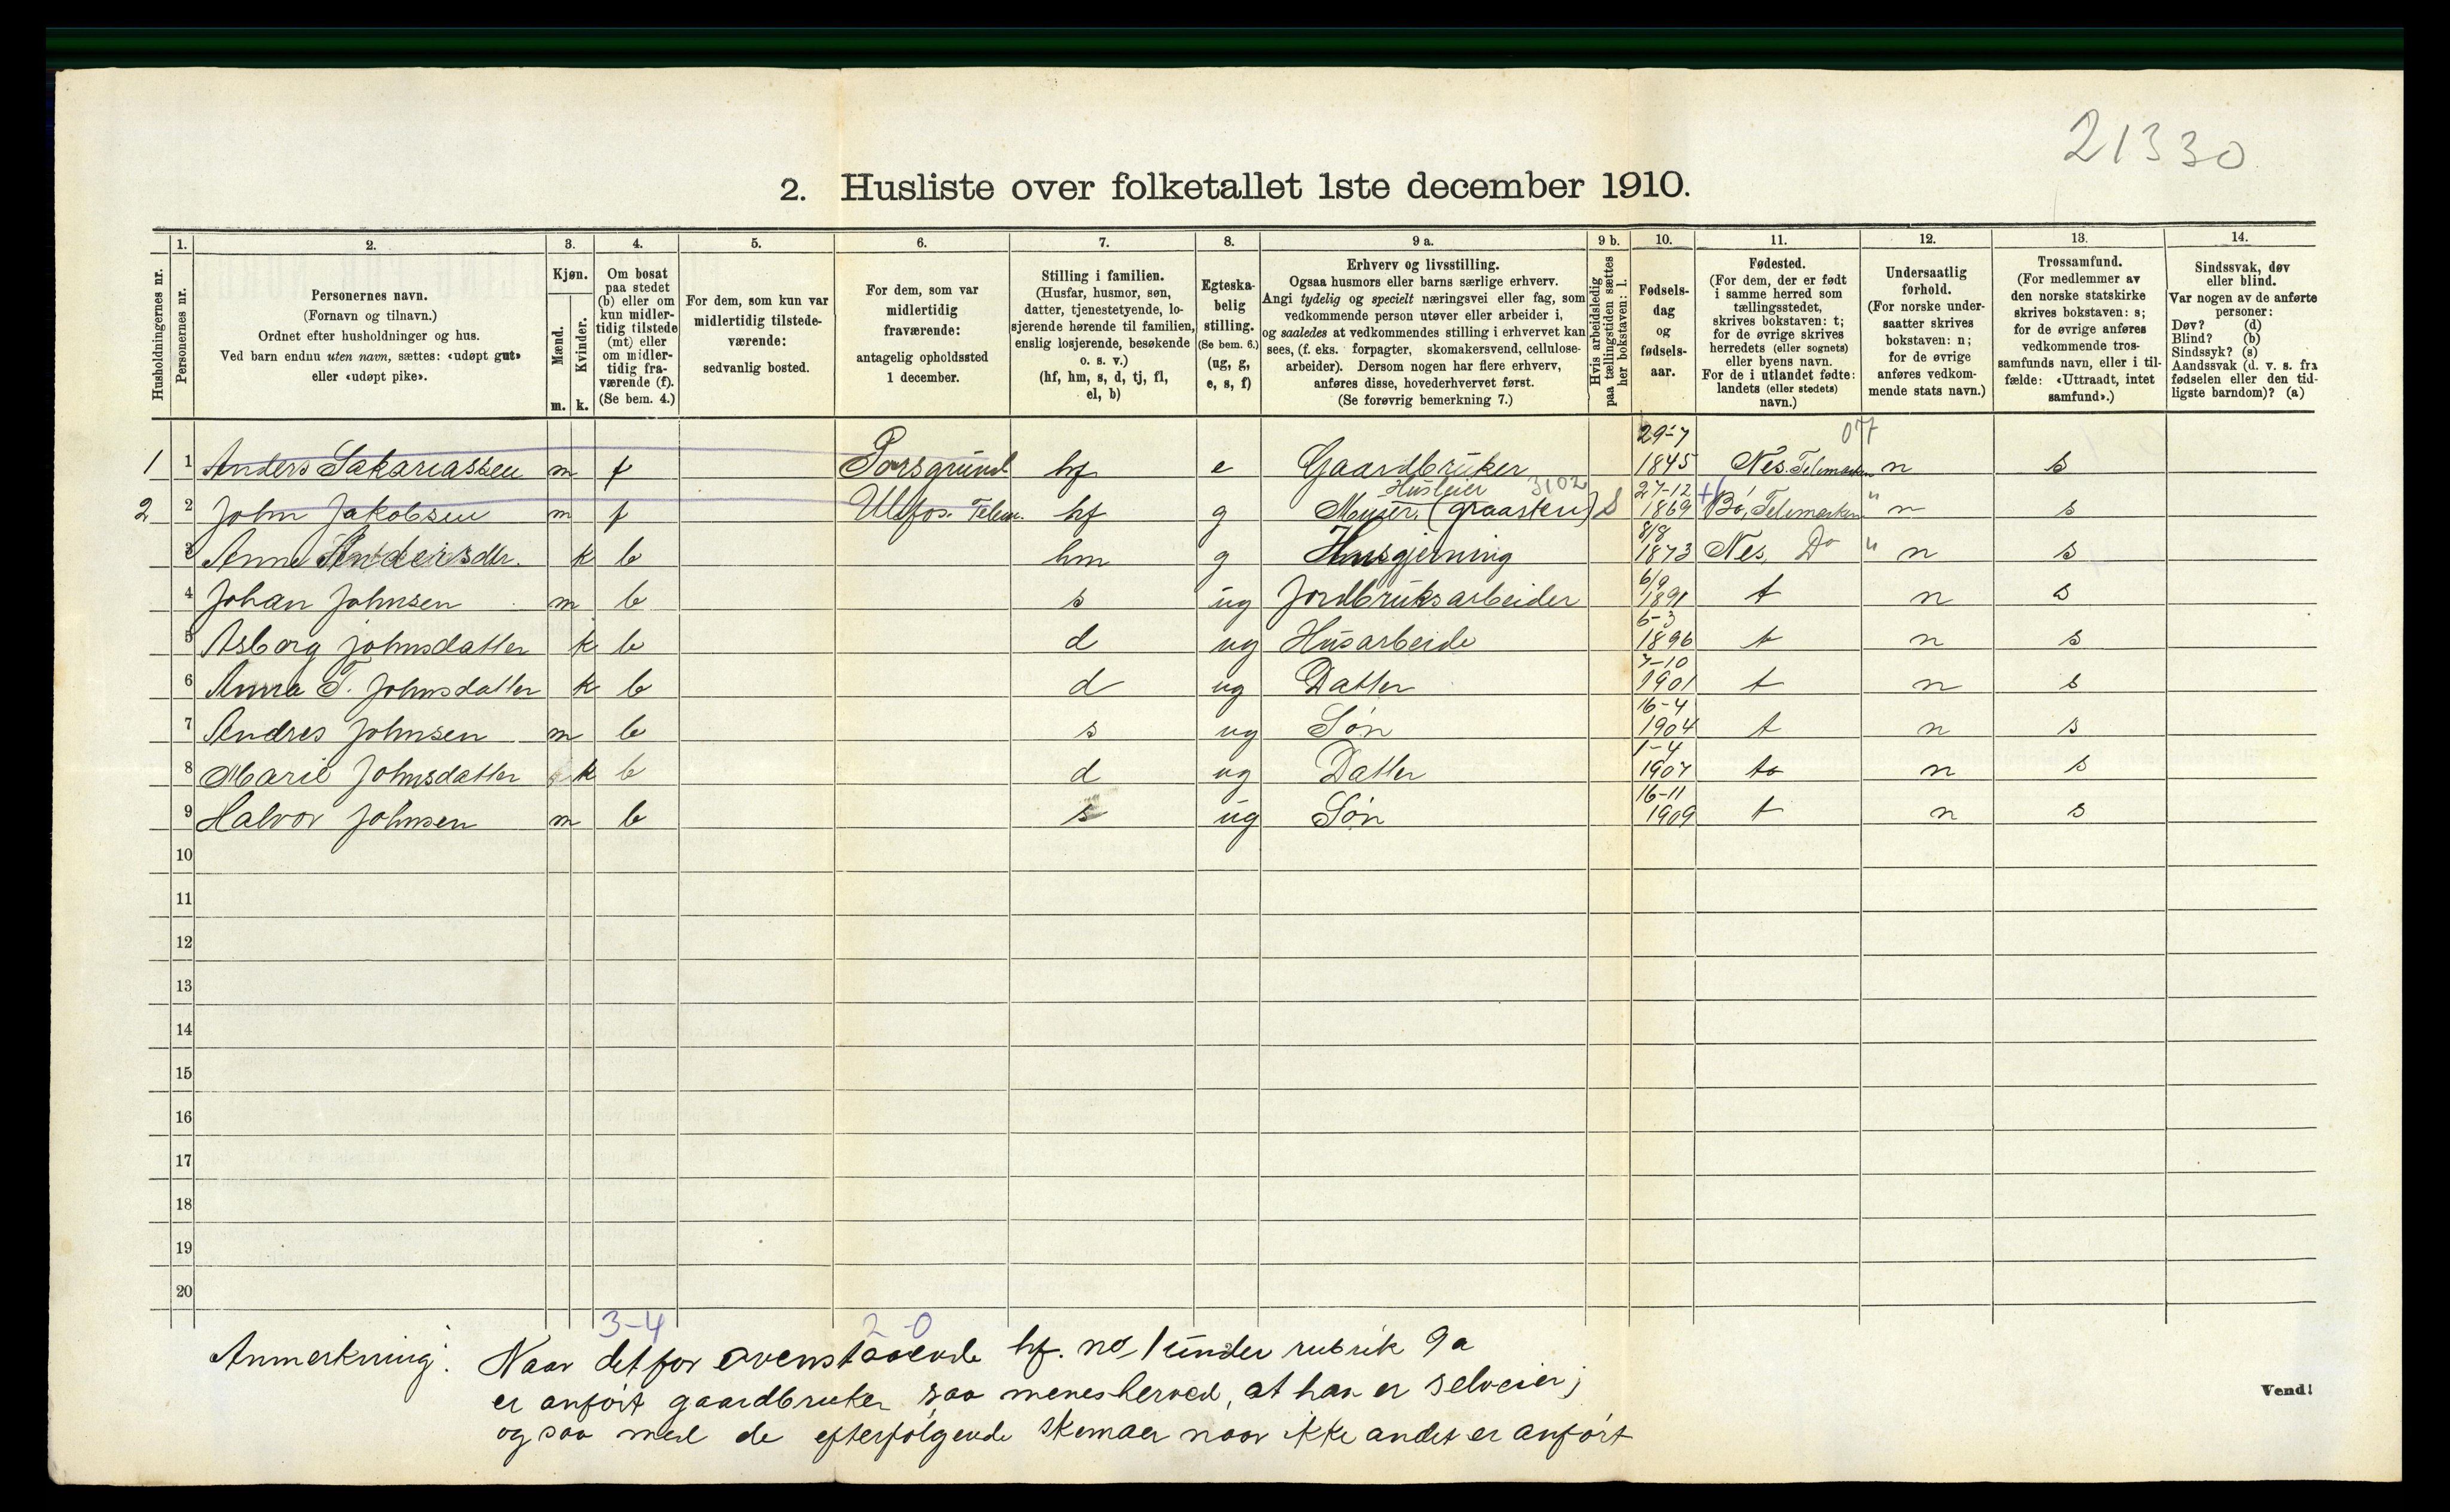 21330
2. Husliste over folketallet 1ste december 1910.
Husholdningernes nr.
1.
Personernes nr.
2.
Personernes navn.
(Fornavn og tilnavn.)
Ordnet efter husholdninger og hus.
Ved barn endnu uten navn, sættes: «udøpt gut»
eller «udøpt pike».
3.
Kjøn.
Mænd.
Kvinder.
m.
k.
4.
Om bosat
paa stedet
(b) eller om
kun midler-
tidig tilstede
(mt) eller
om midler-
tidig fra-
værende (f).
(Se bem. 4.)
5.
For dem, som kun var
midlertidig tilstede-
værende:
sedvanlig bosted.
6.
For dem, som var
midlertidig
fraværende:
antagelig opholdssted
1 december.
7.
Stilling i familien.
(Husfar, husmor, søn,
datter, tjenestetyende, lo-
sjerende hørende til familien,
enslig losjerende, besøkende
o. s. v.)
(hf, hm, s, d, tj, fl,
el, b)
8.
Egteska-
belig
stilling.
(Se bem. 6.)
(ug, g,
e, s, f)
9 a.
Erhverv og livsstilling.
Ogsaa husmors eller barns særlige erhverv.
Angi tydelig og specielt næringsvei eller fag, som
vedkommende person utøver eller arbeider i,
og saaledes at vedkommendes stilling i erhvervet kan
sees, (f. eks. forpagter, skomakersvend, cellulose-
arbeider). Dersom nogen har flere erhverv,
anføres disse, hovederhvervet først.
(Se forøvrig bemerkning 7.)
9 b.
Hvis arbeidsledig
paa tællingstiden sættes
her bokstaven: l.
10.
Fødsels-
dag
og
fødsels-
aar.
11.
Fødested.
(For dem, der er født
i samme herred som
tællingsstedet,
skrives bokstaven: t;
for de øvrige skrives
herredets (eller sognets)
eller byens navn.
For de i utlandet fødte:
landets (eller stedets)
navn.)
12.
Undersaatlig
forhold.
(For norske under-
saatter skrives
bokstaven: n;
for de øvrige
anføres vedkom-
mende stats navn.)
13.
Trossamfund.
(For medlemmer av
den norske statskirke
skrives bokstaven: s;
for de øvrige anføres
vedkommende tros-
samfunds navn, eller i til-
fælde: «Uttraadt, intet
samfund».)
14.
Sindssvak, døv
eller blind.
Var nogen av de anførte
personer:
Døv? (d)
Blind? (b)
Sindssyk? (s)
Aandssvak (d. v. s. fra
fødselen eller den tid-
ligste barndom)? (a)
1 1 Anders Sakariassen m f Porsgrund hf e Gaardbruker 29-7 1845 Nes. Telemarken n s
2 2 John Jakobsen m f Ulefos. Telem. hf g Husleier 3102 Murer. (graasten) 27-12 1869 Bø, Telemarken " n s
3 Anne Andersdtr. k b hm g Husgjerning 8/8 1873 Nes, Do " n s
4 Johan Johnsen m b s ug Jordbruksarbeider 6/9 1891 t n s
5 Asborg Johnsdatter k b d ug Husarbeide 6-3 1896 t n s
6 Anna T. Johnsdatter k b d ug Datter 7-10 1901 t n s
7 Andres Johnsen m b s ug Søn 16-4 1904 t n s
8 Marie Johnsdatter k b d ug Datter 1-4 1907 t n s
9 Halvor Johnsen m b s ug Søn 16-11 1909 t n s
10
11
12
13
14
15
16
17
18
19
20
3-4 2-0
Anmerkning: Naar det for ovenstaaende hf. no 1 under rubrik 9a
er anført gaardbruker saa menes herved, at han er selveier;
og saa med de efterfølgende skemaer naar ikke andet er anført
Vend!